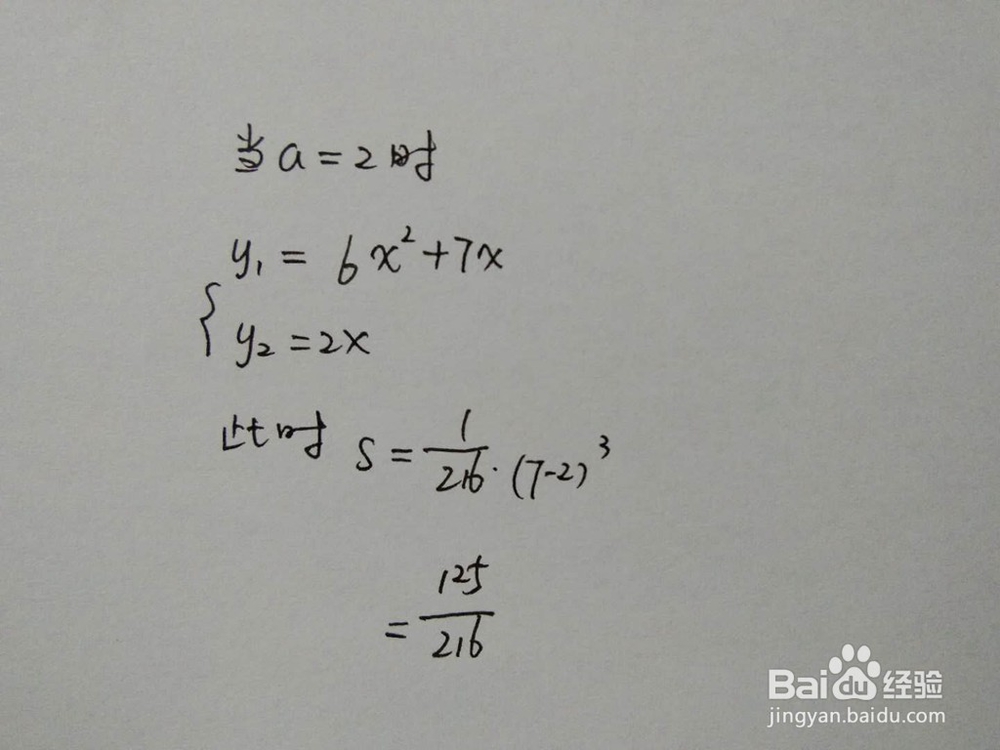 当a=2时
y₁ = 6x²+7x
{
y₂ =2x
此时 S = 1/216 · (7-2)³
= 125/216
Baidu经验
jingyan.baidu.com